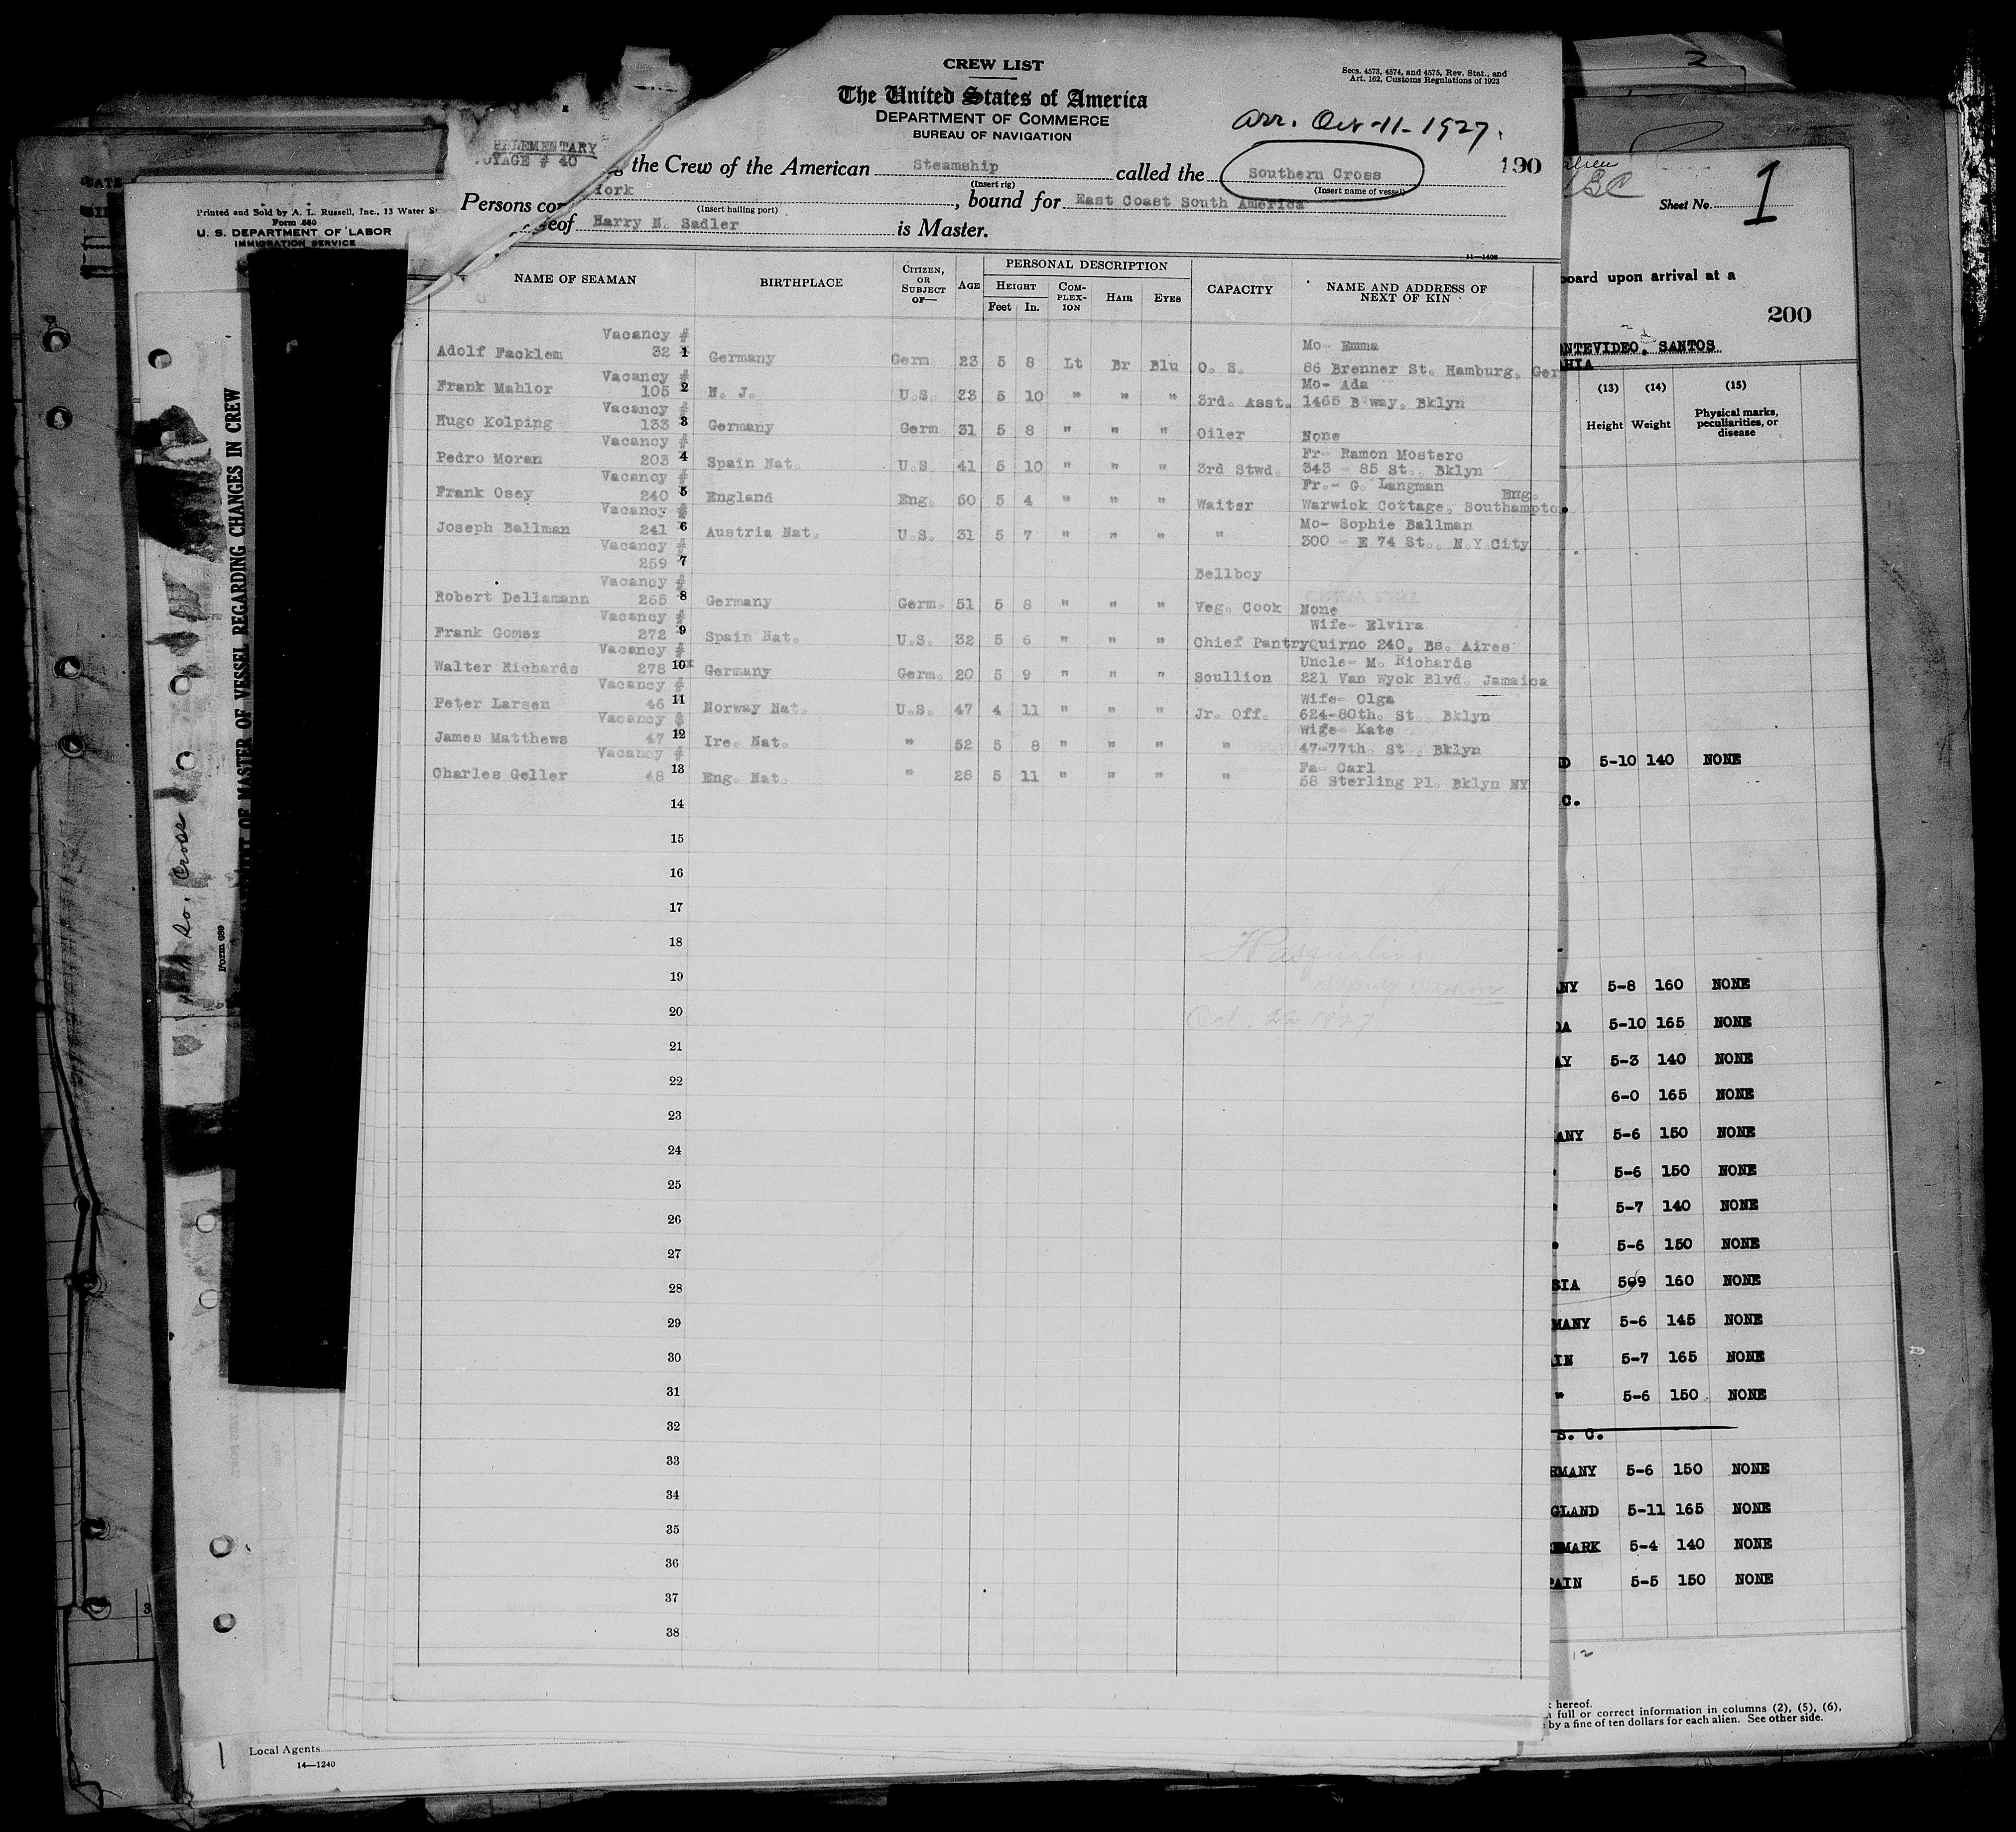 CREW LIST
The United States of America
DEPARTMENT OF COMMERCE
BUREAU OF NAVIGATION
Secs. 4573, 4574, and 4575, Rev. Stat., and
Art. 162, Customs Regulations of 1923
arr. Oct-11-1927.
190
PLEMENTARY
VOYAGE # 40
the Crew of the American Steamship called the Southern Cross
(Insert rig) (Insert name of vessel)
Persons York, bound for East Coast South America
(Insert hailing port)
eof Harry N. Sadler is Master.
11—1406
NAME OF SEAMAN BIRTHPLACE CITIZEN, OR SUBJECT OF— AGE PERSONAL DESCRIPTION CAPACITY NAME AND ADDRESS OF NEXT OF KIN
HEIGHT COM-PLEX-ION HAIR EYES
Feet In.
Vacancy # Mo- Emma
Adolf Facklem 32 1 Germany Germ. 23 5 8 Lt Br Blu O. S. 86 Brenner St. Hamburg, Ger
Vacancy # Mo- Ada
Frank Mahlor 105 2 N. J. U.S. 23 5 10 " " " 3rd. Asst. 1465 B'way, Bklyn
Vacancy #
Hugo Kolping 133 3 Germany Germ 31 5 8 " " " Oiler None
Vacancy # Fr- Ramon Mostero
Pedro Moren 203 4 Spain Nat. U.S. 41 5 10 " " " 3rd Stwd. 343 - 85 St., Bklyn
Vacancy # Fr.- G. Langman Eng.
Frank Osey 240 5 England Eng. 50 5 4 " " " Waiter Warwick Cottage, Southampto.
Vacancy # Mo- Sophie Ballman
Joseph Ballman 241 6 Austria Nat. U.S. 31 5 7 " " " " 300 - E 74 St., N.Y.City
Vacancy #
259 7 Bellboy
Vacancy #
Robert Dellamann 265 8 Germany Germ. 51 5 8 " " " Veg. Cook None
Vacancy # Wife- Elvira
Frank Gomez 272 9 Spain Nat. U.S. 32 5 6 " " " Chief Pantry Quirno 240, Bs. Aires
Vacancy # Uncle- M. Richards
Walter Richards 278 10x Germany Germ. 20 5 9 " " " Scullion 221 Van Wyck Blvd. Jamaica
Vacancy # Wife- Olga
Peter Larsen 46 11 Norway Nat. U.S. 47 4 11 " " " Jr. Off. 624-80th. St., Bklyn
Vacancy $ Wife- Kate
James Matthews 47 12 Ire. Nat. " 52 5 8 " " " " 47-77th. St., Bklyn
Vacancy # Fa- Carl
Charles Geller 48 13 Eng. Nat. " 28 5 11 " " " " 58 Sterling Pl. Bklyn NY
14
15
16
17
18
19
20
Oct. 22 1927
21
22
23
24
25
26
27
28
29
30
31
32
33
34
35
36
37
38
Printed and Sold by A. L. Russell, Inc., 13 Water S
Form 680
U. S. DEPARTMENT OF LABOR
IMMIGRATION SERVICE
OF MASTER OF VESSEL REGARDING CHANGES IN CREW
So. Cross
Form 689
Local Agents
14—1240
2
Sheet No. 1
board upon arrival at a
200
NTEVIDEO, SANTOS
AHIA
(13) (14) (15)
Height Weight Physical marks, peculiarities, or disease
D 5-10 140 NONE
C.
NY 5-8 160 NONE
DA 5-10 165 NONE
AY 5-3 140 NONE
6-0 165 NONE
ANY 5-6 150 NONE
" 5-6 150 NONE
" 5-7 140 NONE
" 5-6 150 NONE
SIA 509 160 NONE
MANY 5-6 145 NONE
IN 5-7 165 NONE
" 5-6 150 NONE
S. C.
RMANY 5-6 150 NONE
GLAND 5-11 165 NONE
NMARK 5-4 140 NONE
PAIN 5-5 150 NONE
12
hereof.
full or correct information in columns (2), (5), (6),
by a fine of ten dollars for each alien. See other side.
3